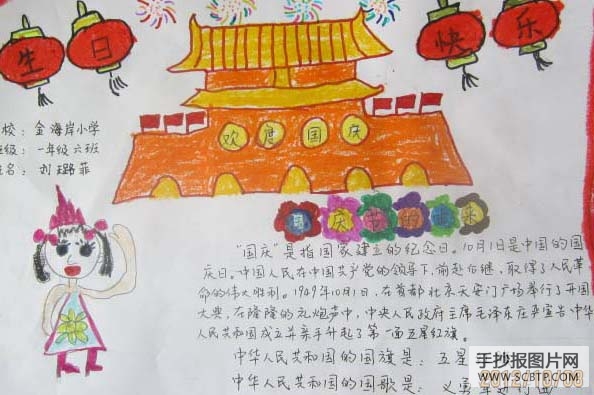 生日快乐
校：金海岸小学
级：一年级六班
名：刘璐菲
欢度国庆
国庆节的由来
"国庆"是指国家建立的纪念日。10月1日是中国的国
庆日。中国人民在中国共产党的领导下,前赴后继,取得了人民革
命的伟大胜利。1949年10月1日,在首都北京天安门广场举行了开国
大典,在隆隆的礼炮声中,中央人民政府主席毛泽东庄严宣告中华
人民共和国成立并亲手升起了第一面五星红旗。
中华人民共和国的国旗是：五星
中华人民共和国的国歌是：义勇军进行曲
手抄报图片网
WWW.SCBTP.COM
2012/10/08